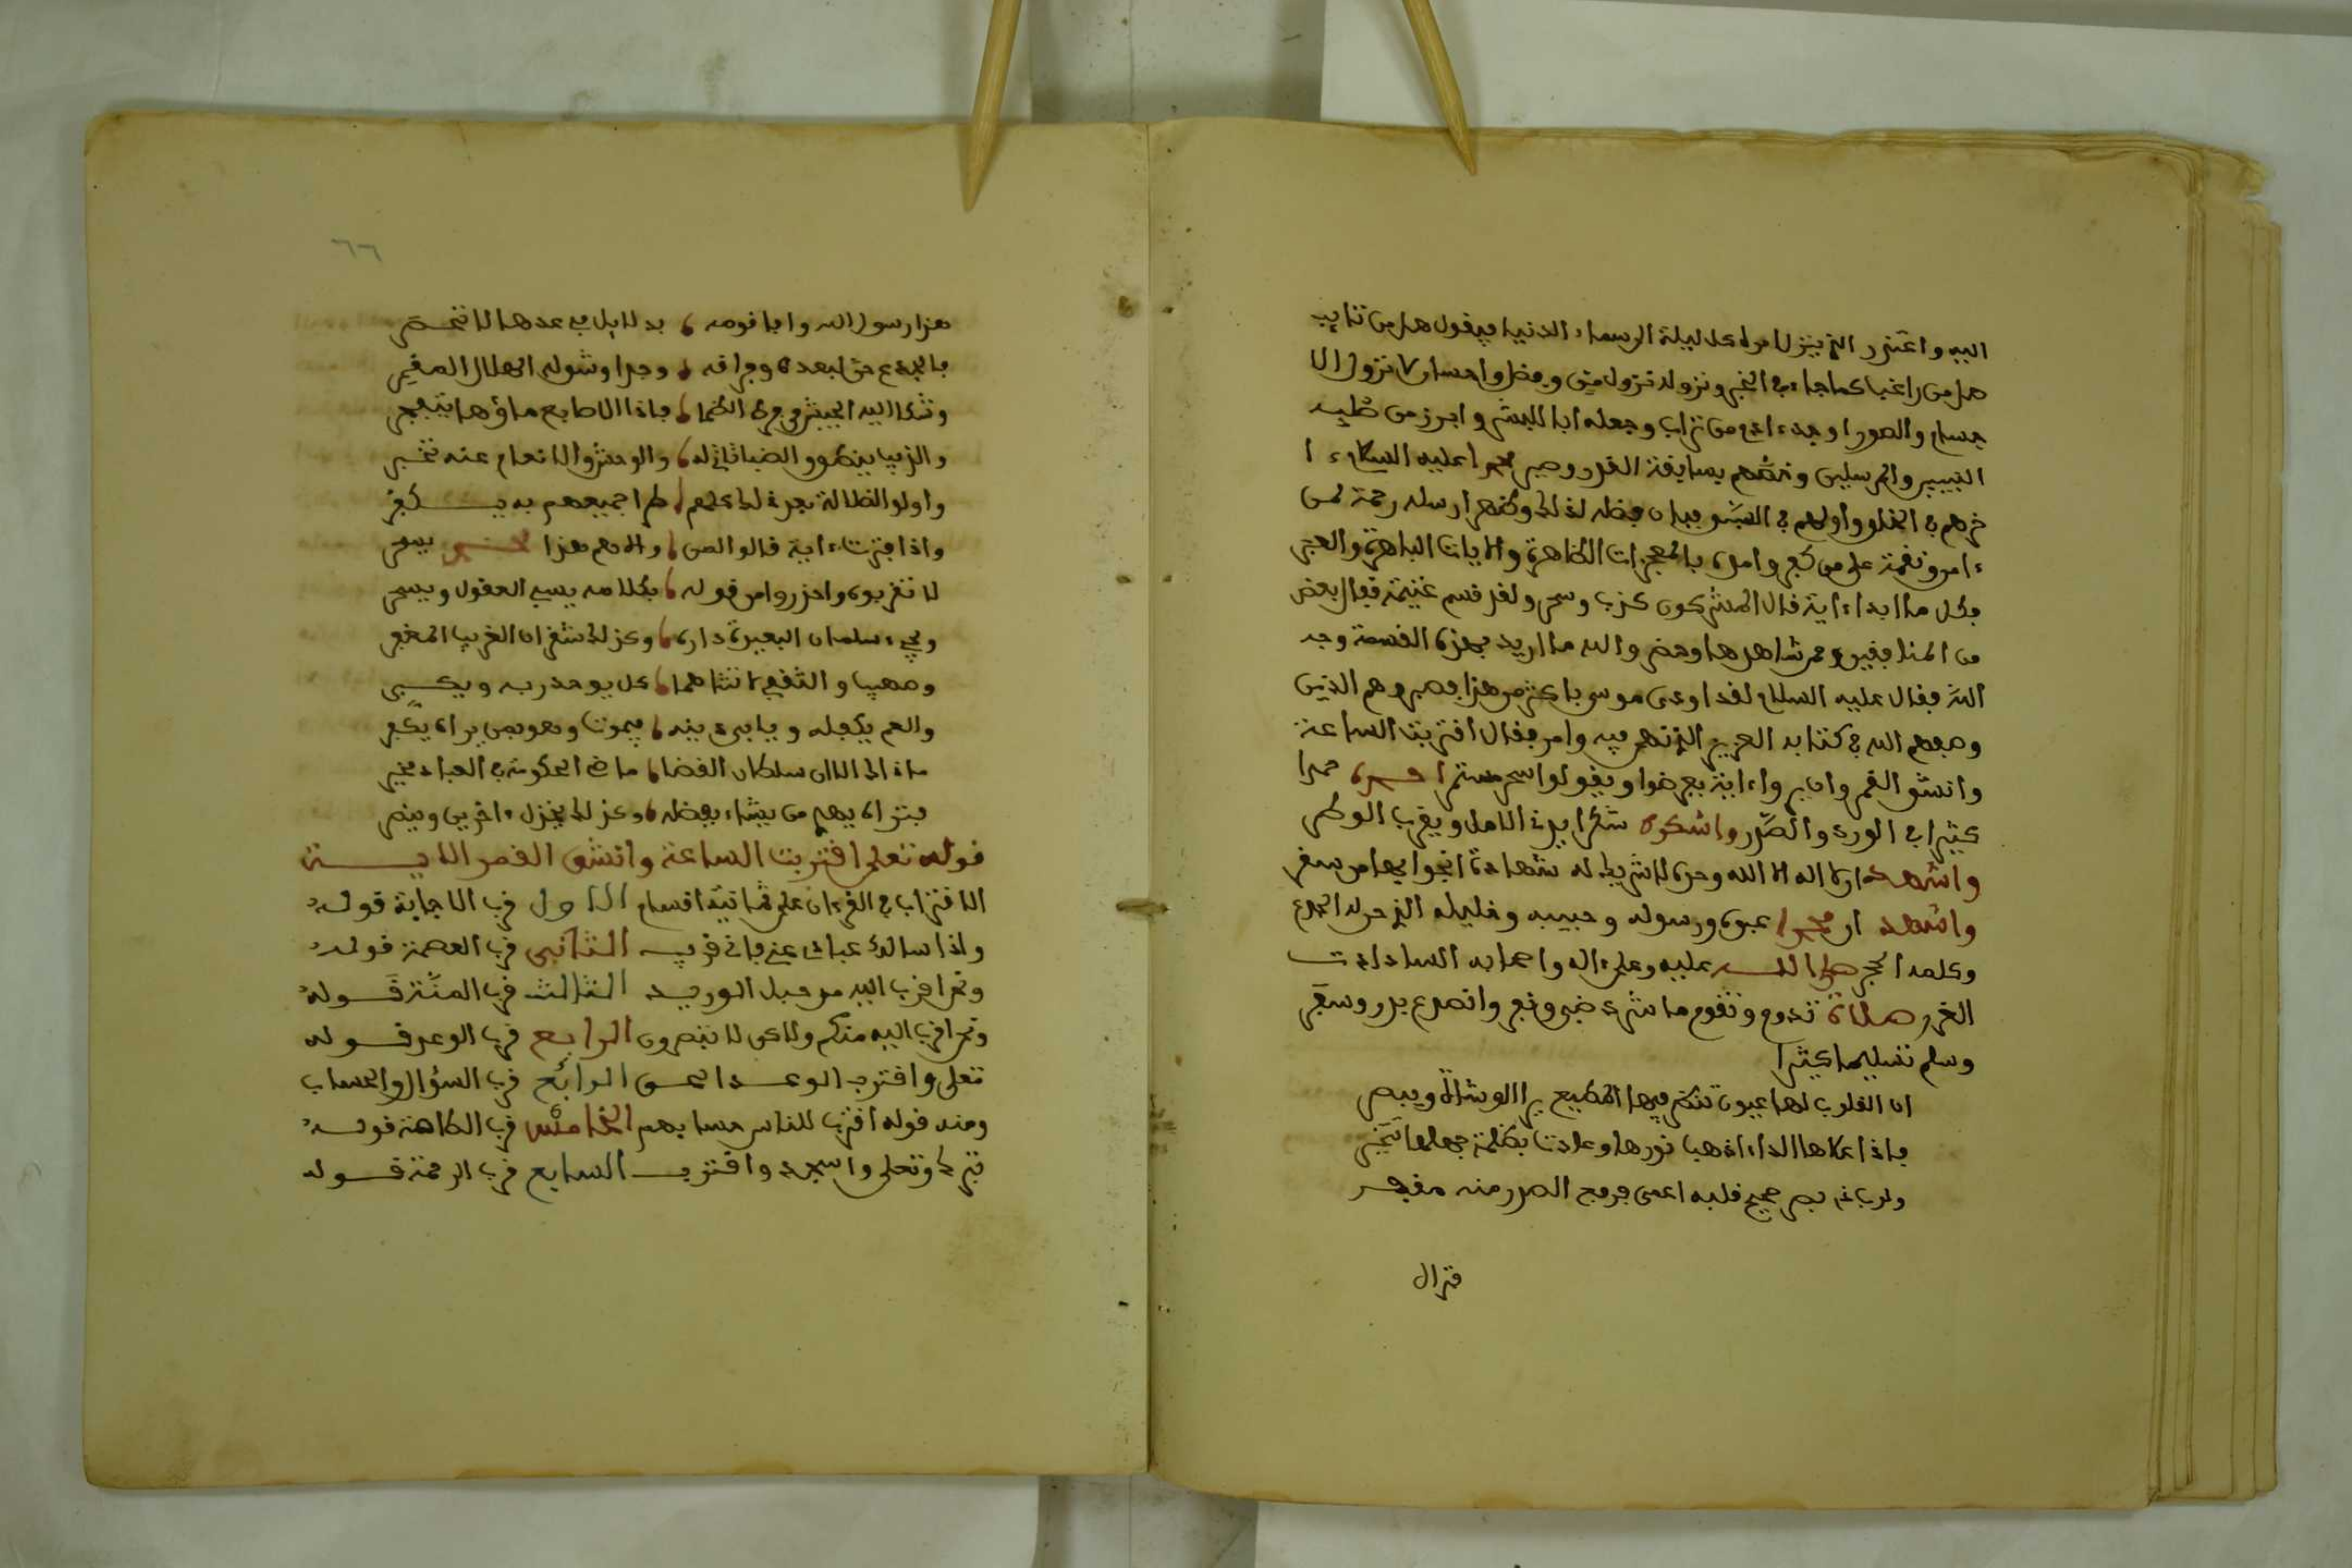 اليه واعتذر الذي ينزل امره كل ليلة الى سماء الدنيا فيقول هل من تايب
هل من راغب كما جاء في الخبر ونزوله نزول من وفضل واحسان لا نزول الا
جسام والصور اوجد ءادم من تراب وجعله ابا البشر وابرز من صلبه
النبيين والمرسلين وخصهم بسابقة القدر وصير محمدا عليه السلام ءا
خرهم في الخلق واولهم في السبق فبان فضله لذلك وظهر ارسله رحمة لمن
ءامن ونقمة على من كفر وامده بالمعجزات الظاهرة والايات الباهرة والعبر
فكل ما ابدا ءاية قال المشركون كذب وسحر ولقد قسم غنيمة فقال بعض
من المنافقين ممن شاهدها وحضر والله ما اريد بهذه القسمة وجه
الله فقال عليه السلام لقد اوذى موسى باكثر من هذا فصبر وهم الذين
وصفهم الله في كتابه العزيز الذي نهى فيه وامر فقال اقتربت الساعة
وانشق القمر وان يروا ءاية يعرضوا ويقولوا سحر مستمر احمده حمدا
كثيرا في الورد والصدر واشكره شكرا يدني الامل ويقرب الوطر
واشهد ان لا اله الا الله وحده لا شريك له شهادة انجوا بها من سقر
واشهد ان محمدا عبده ورسوله وحبيبه وخليله الذي حن له الجذع
وكلمه الحجر صلى الله عليه وعلى ءاله واصحابه السادات
الغرر صلاة تدوم وتقوم ما شرى ضر ونفع وانصدع بدر وسفر
وسلم تسليما كثيرا
ان القلوب لها عيون تنظر فيها المطيع يرا الوشاة ويبصر
فاذا علاها الداء اذهب نورها وعلات بظلمة جهلها تتحير
ولرب ذي بصر صحيح قلبه اعمى جريح الصدر منه مفجر
فترال
٦٦
هذا رسول الله وافا قومه بدلايل في عدها لا تحصر
فالجذع حن لبعده وفراقه وجدا وشق له الهلال المقمر
وشكا اليه الجيش من حر الظما فاذا الاصابع ماؤها يتفجر
والذيب ينطق والضباثاني له والوحش والانعام عنه تخبر
واولوا الضلالة بعد ذلك كلهم طرا جميعهم به يكفر
واذا بدت ءاية قالوا الص والدهم هذا محمد يسحر
لا تقربوه واحذروا من قوله بكلامه يسبي العقول ويسحر
ويجيء سلمان البعيدة داره وكذلك شقران الغريب المفقر
وصهيب والثقفي لا تنساهما كل يوحد ربه ويكبر
والعم يكفله ويابي دينه فيموت وهو بمن يراه يكفر
ماذاك الا ان سلطان القضا ماضي الحكومة في العباد مخير
فتراه يهدي من يشاء بفضله وكذلك يخذل ءاخرين وينصر
قوله تعلى اقتربت الساعة وانشق القمر الاية
الاقتراب في القرءان على ثمانية اقسام الاول قرب الاجابة قوله
واذا سالك عبادي عني فاني قريب الثاني قرب العصمة قوله
ونحن اقرب اليه من حبل الوريد الثالث قرب المنة قوله
ونحن اقرب اليه منكم ولاكن لا تبصرون الرابع قرب الوعد قوله
تعلى واقترب الوعد الحق الرابع قرب السؤال والحساب
ومنه قوله اقترب للناس حسابهم الخامس قرب الطاعة قوله
تبرك وتعلى واسجد واقترب السابع قرب الرحمة قوله